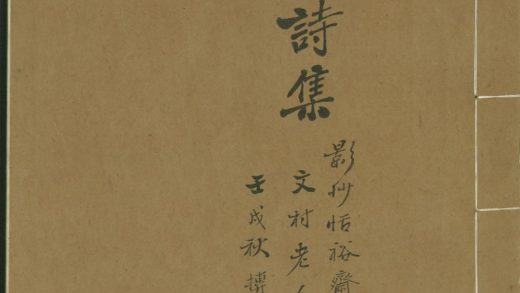 詩集
影抄恬裕齋
文村老人
壬戌秋